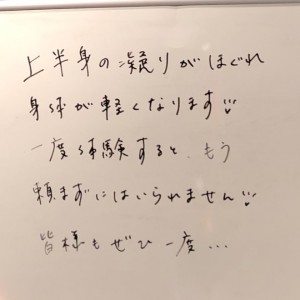 上半身の凝りがほぐれ
身体が軽くなります
一度体験すると、もう
頼まずにはいられません
皆様もぜひ一度...